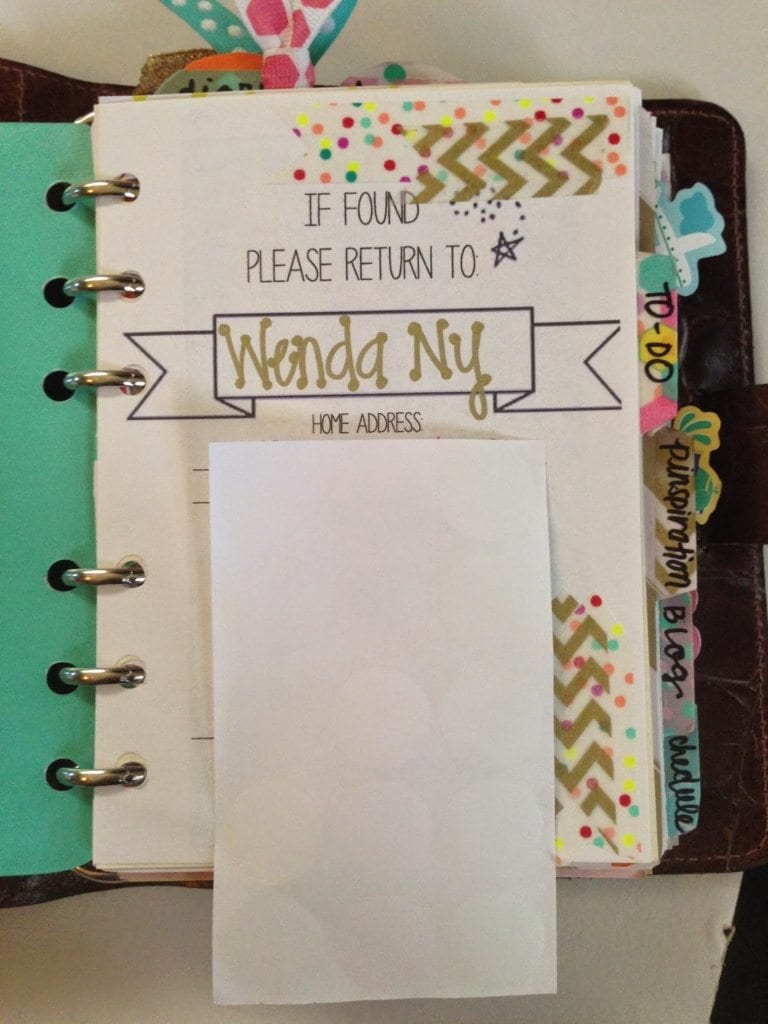 IF FOUND
PLEASE RETURN TO:
Wenda Ny
HOME ADDRESS:
TO-DO
pinspiration
Blog
chedule